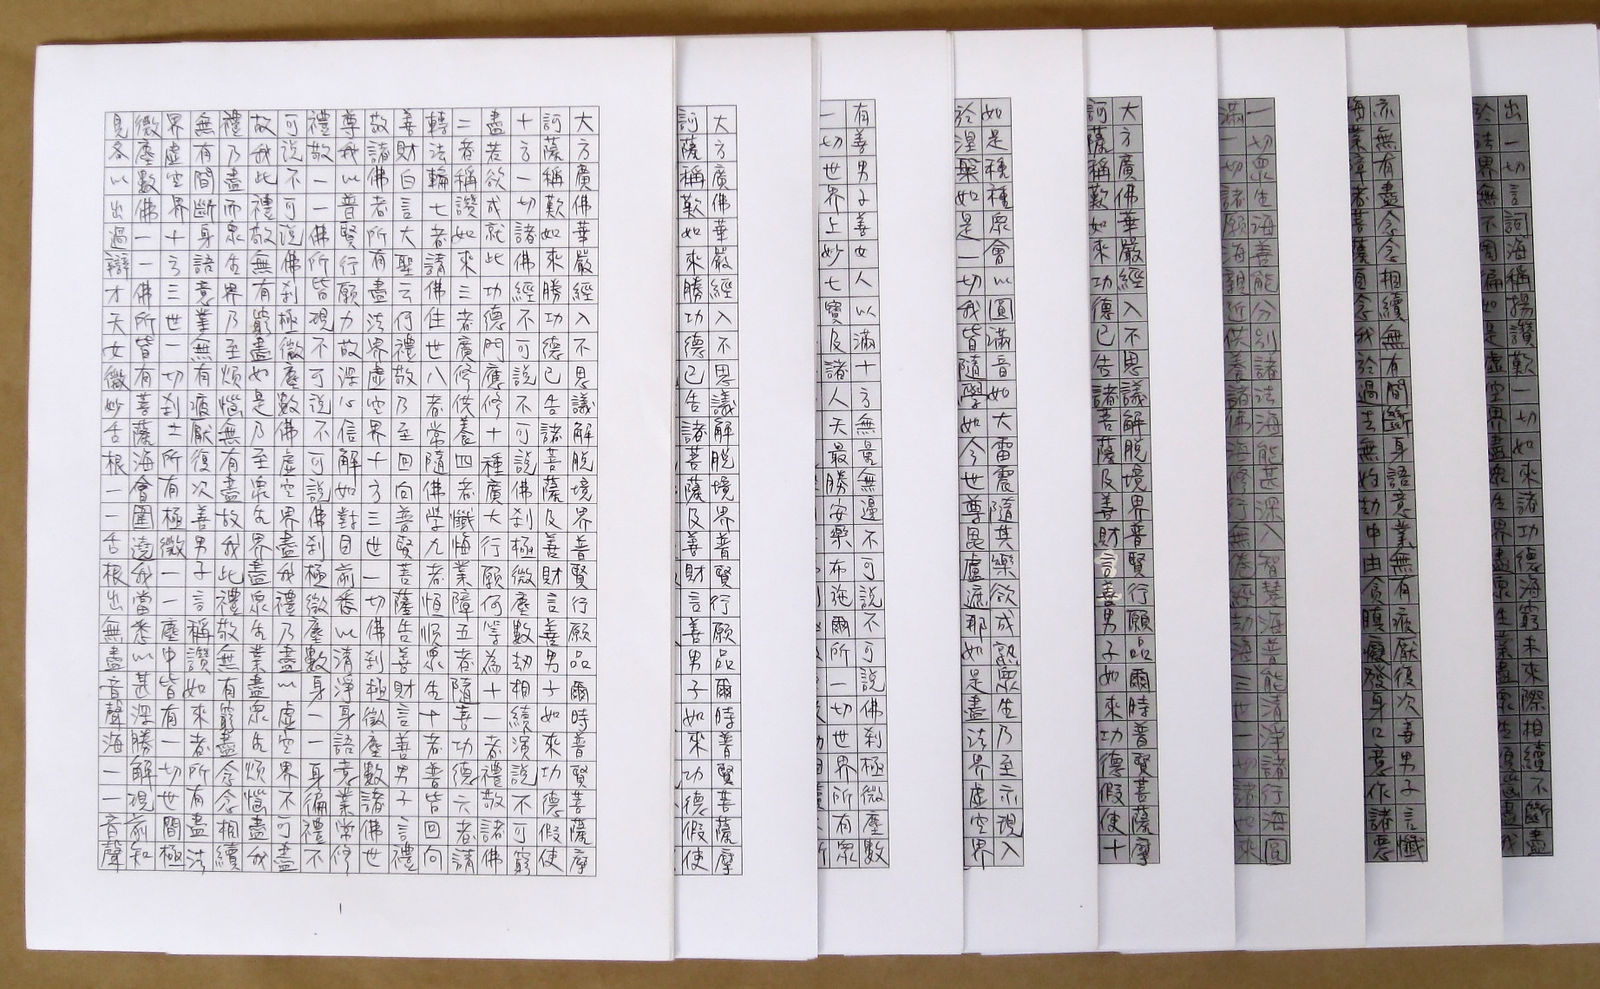 大方廣佛華嚴經入不思議解脫境界普賢行願品爾時普賢菩薩摩
訶薩稱歎如來勝功德已告諸菩薩及善財言善男子如來功德假使
十方一切諸佛經不可說不可說佛剎極微塵數劫相續演說不可窮
盡若欲成就此功德門應修十種廣大行願何等為十一者禮敬諸佛
二者稱讚如來三者廣修供養四者懺悔業障五者隨喜功德六者請
轉法輪七者請佛住世八者常隨佛學九者恒順眾生十者普皆回向
善財白言大聖云何禮敬乃至回向普賢菩薩告善財言善男子言禮
敬諸佛者所有盡法界虛空界十方三世一切佛剎極微塵數諸佛世
尊我以普賢行願力故深心信解如對目前悉以清淨身語意業常修
禮敬一一佛所皆現不可說不可說佛剎極微塵數身一一身徧禮不
可說不可說佛剎極微塵數佛虛空界盡我禮乃盡以虛空界不可盡
故我此禮敬無有窮盡如是乃至眾生界盡眾生業盡眾生煩惱盡我
禮乃盡而眾生界乃至煩惱無有盡故我此禮敬無有窮盡念念相續
無有間斷身語意業無有疲厭復次善男子言稱讚如來者所有盡法
界虛空界十方三世一切剎土所有極微一一塵中皆有一切世間極
微塵數佛一一佛所皆有菩薩海會圍遶我當悉以甚深勝解現前知
見各以出過辯才天女微妙舌根一一舌根出無盡音聲海一一音聲
1
大方廣佛華嚴經入不思議解脫境界普賢行願品爾時普賢菩薩摩
訶薩稱歎如來勝功德已告諸菩薩及善財言善男子如來功德假使
有善男子善女人以滿十方無量無邊不可說不可說佛剎極微塵數
一切世界上妙七寶及諸人天最勝安樂布施爾所一切世界所有眾
如是種種眾會以圓滿音如大雷震隨其樂欲成熟眾生乃至示現入
於涅槃如是一切我皆隨學如今世尊毘盧遮那如是盡法界虛空界
大方廣佛華嚴經入不思議解脫境界普賢行願品爾時普賢菩薩摩
訶薩稱歎如來功德已告諸菩薩及善財言善男子如來功德假使十
一切眾生海善能分別諸法海能甚深入智慧海普能清淨諸行海圓
滿一切諸願海親近供養諸佛海修行無倦經劫海三世一切諸如來
亦無有盡念念相續無有間斷身語意業無有疲厭復次善男子言懺
悔業障者菩薩自念我於過去無始劫中由貪瞋癡發身口意作諸惡
出一切言詞海稱揚讚歎一切如來諸功德海窮未來際相續不斷盡
於法界無不周徧如是虛空界盡眾生界盡眾生業盡眾生煩惱盡我